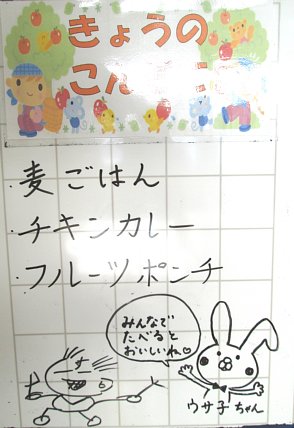 きょうの
こん
麦ごはん
チキンカレー
フルーツポンチ
みんなで
たべると
おいしいね♡
ウサ子ちゃん